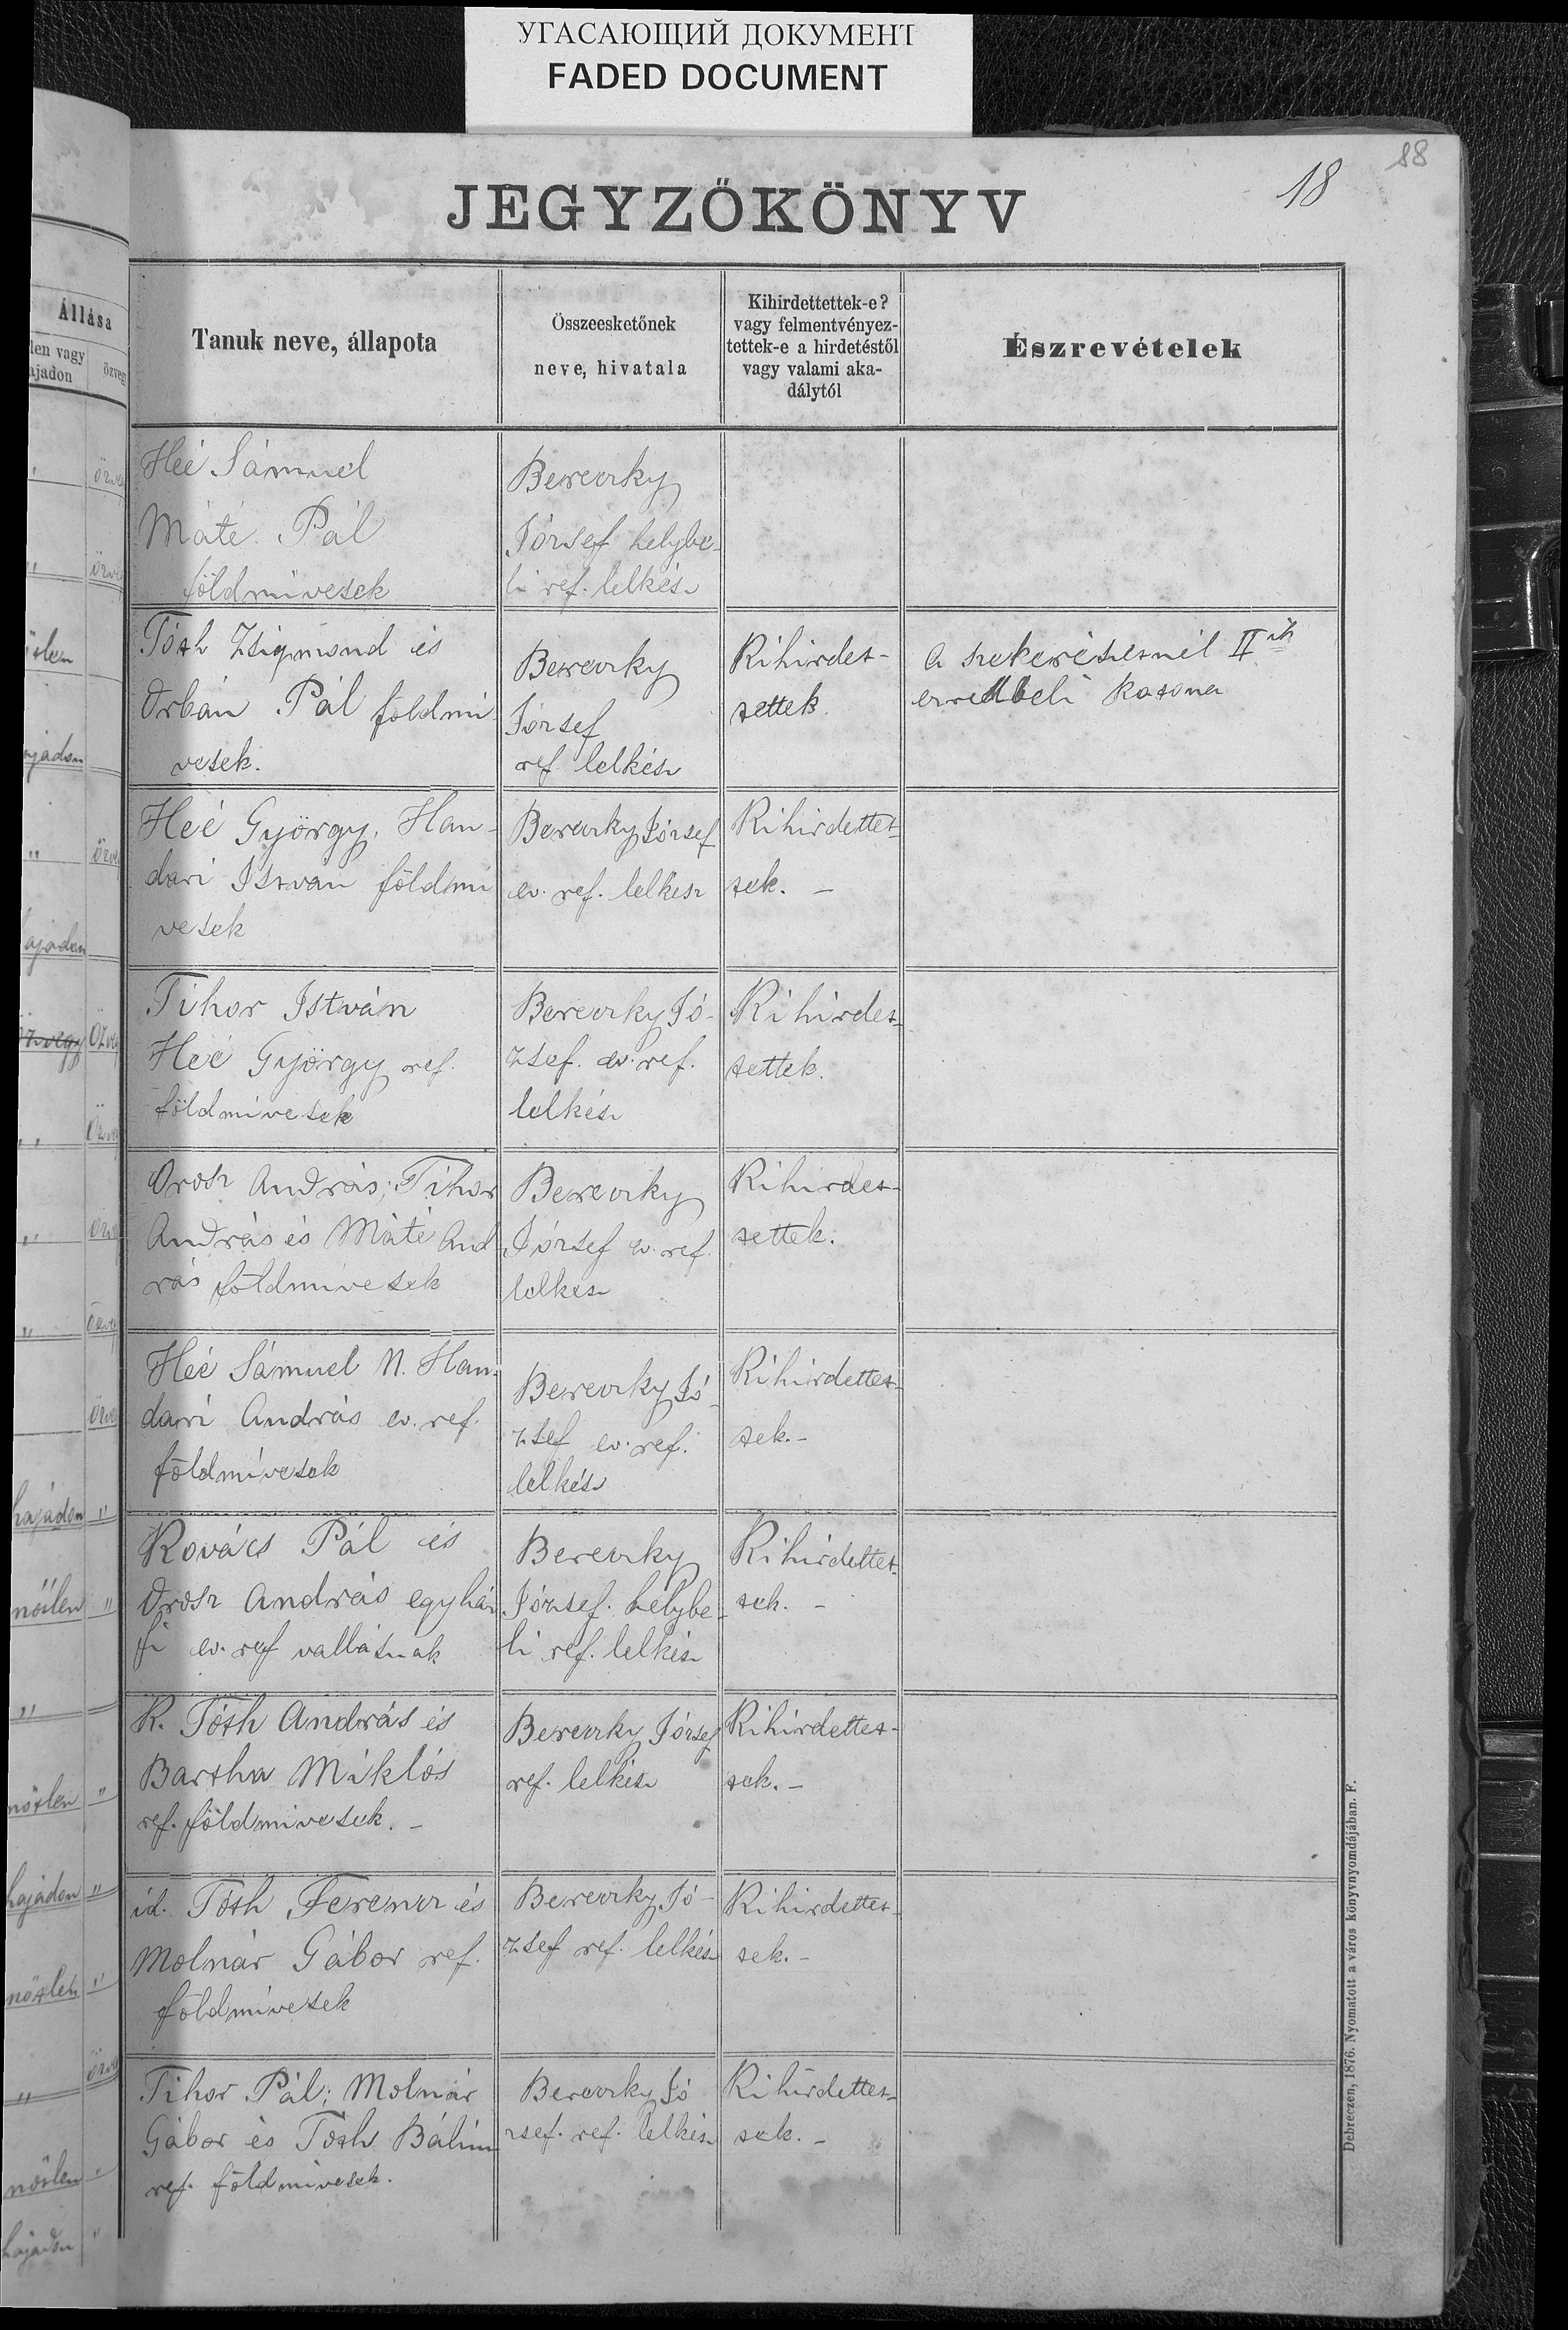 УГАСАЮЩИЙ ДОКУМЕНТ
FADED DOCUMENT
18
18
JEGYZŐKÖNYV
Állása
özvegy
Tanuk neve, állapota
Összeesketőnek
neve, hivatala
Kihirdettettek-e?
vagy felmentvényez-
tettek-e a hirdetéstől
vagy valami aka-
dálytól
Észrevételek
Heé Sámuel
Máté Pál
földmivesek
Bereczky
József helybe-
li ref. lelkész
Tóth Zsigmond és
Orbán Pál földmi
vesek.
Bereczky
József
ref lelkész
Kihirdet-
tettek
a szekerészetnél II ik
ezredbeli katona
Heé György, Han-
dari István földmi
vesek
Bereczky József
ev. ref. lelkész
Kihirdettet-
tek. -
Tihor István
Heé György ref.
földmivesek
Bereczky Jó-
zsef. ev. ref.
lelkész
Kihirdet-
tettek.
Orosz András; Tihor
András és Máté And
rás földmivesek
Bereczky
József ev. ref.
lelkész
Kihirdet-
tettek.
Heé Sámuel N. Han-
dari András ev. ref.
földmívesek
Bereczky Jó-
zsef ev. ref.
lelkész
Kihirdettet-
tek. -
Kovács Pál és
Orosz András egyház
fi ev. ref vallásuak
Bereczky
József. helybe-
li ref. lelkész
Kihirdettet-
tek. -
K. Tóth András és
Bartha Miklós
ref. földmivesek. -
Bereczky József
ref. lelkész
Kihirdettet-
tek. -
id. Tóth Ferencz és
Molnár Gábor ref.
földmívesek
Bereczky Jó-
zsef ref. lelkész
Kihirdettet-
tek. -
Tihor Pál; Molnár
Gábor és Tóth Bálint
ref. földmivesek.
Bereczky Jó
zsef. ref. lelkész
Kihirdettet-
tek. -
Debreczen, 1876. Nyomatott a város könyvnyomdájában. F.